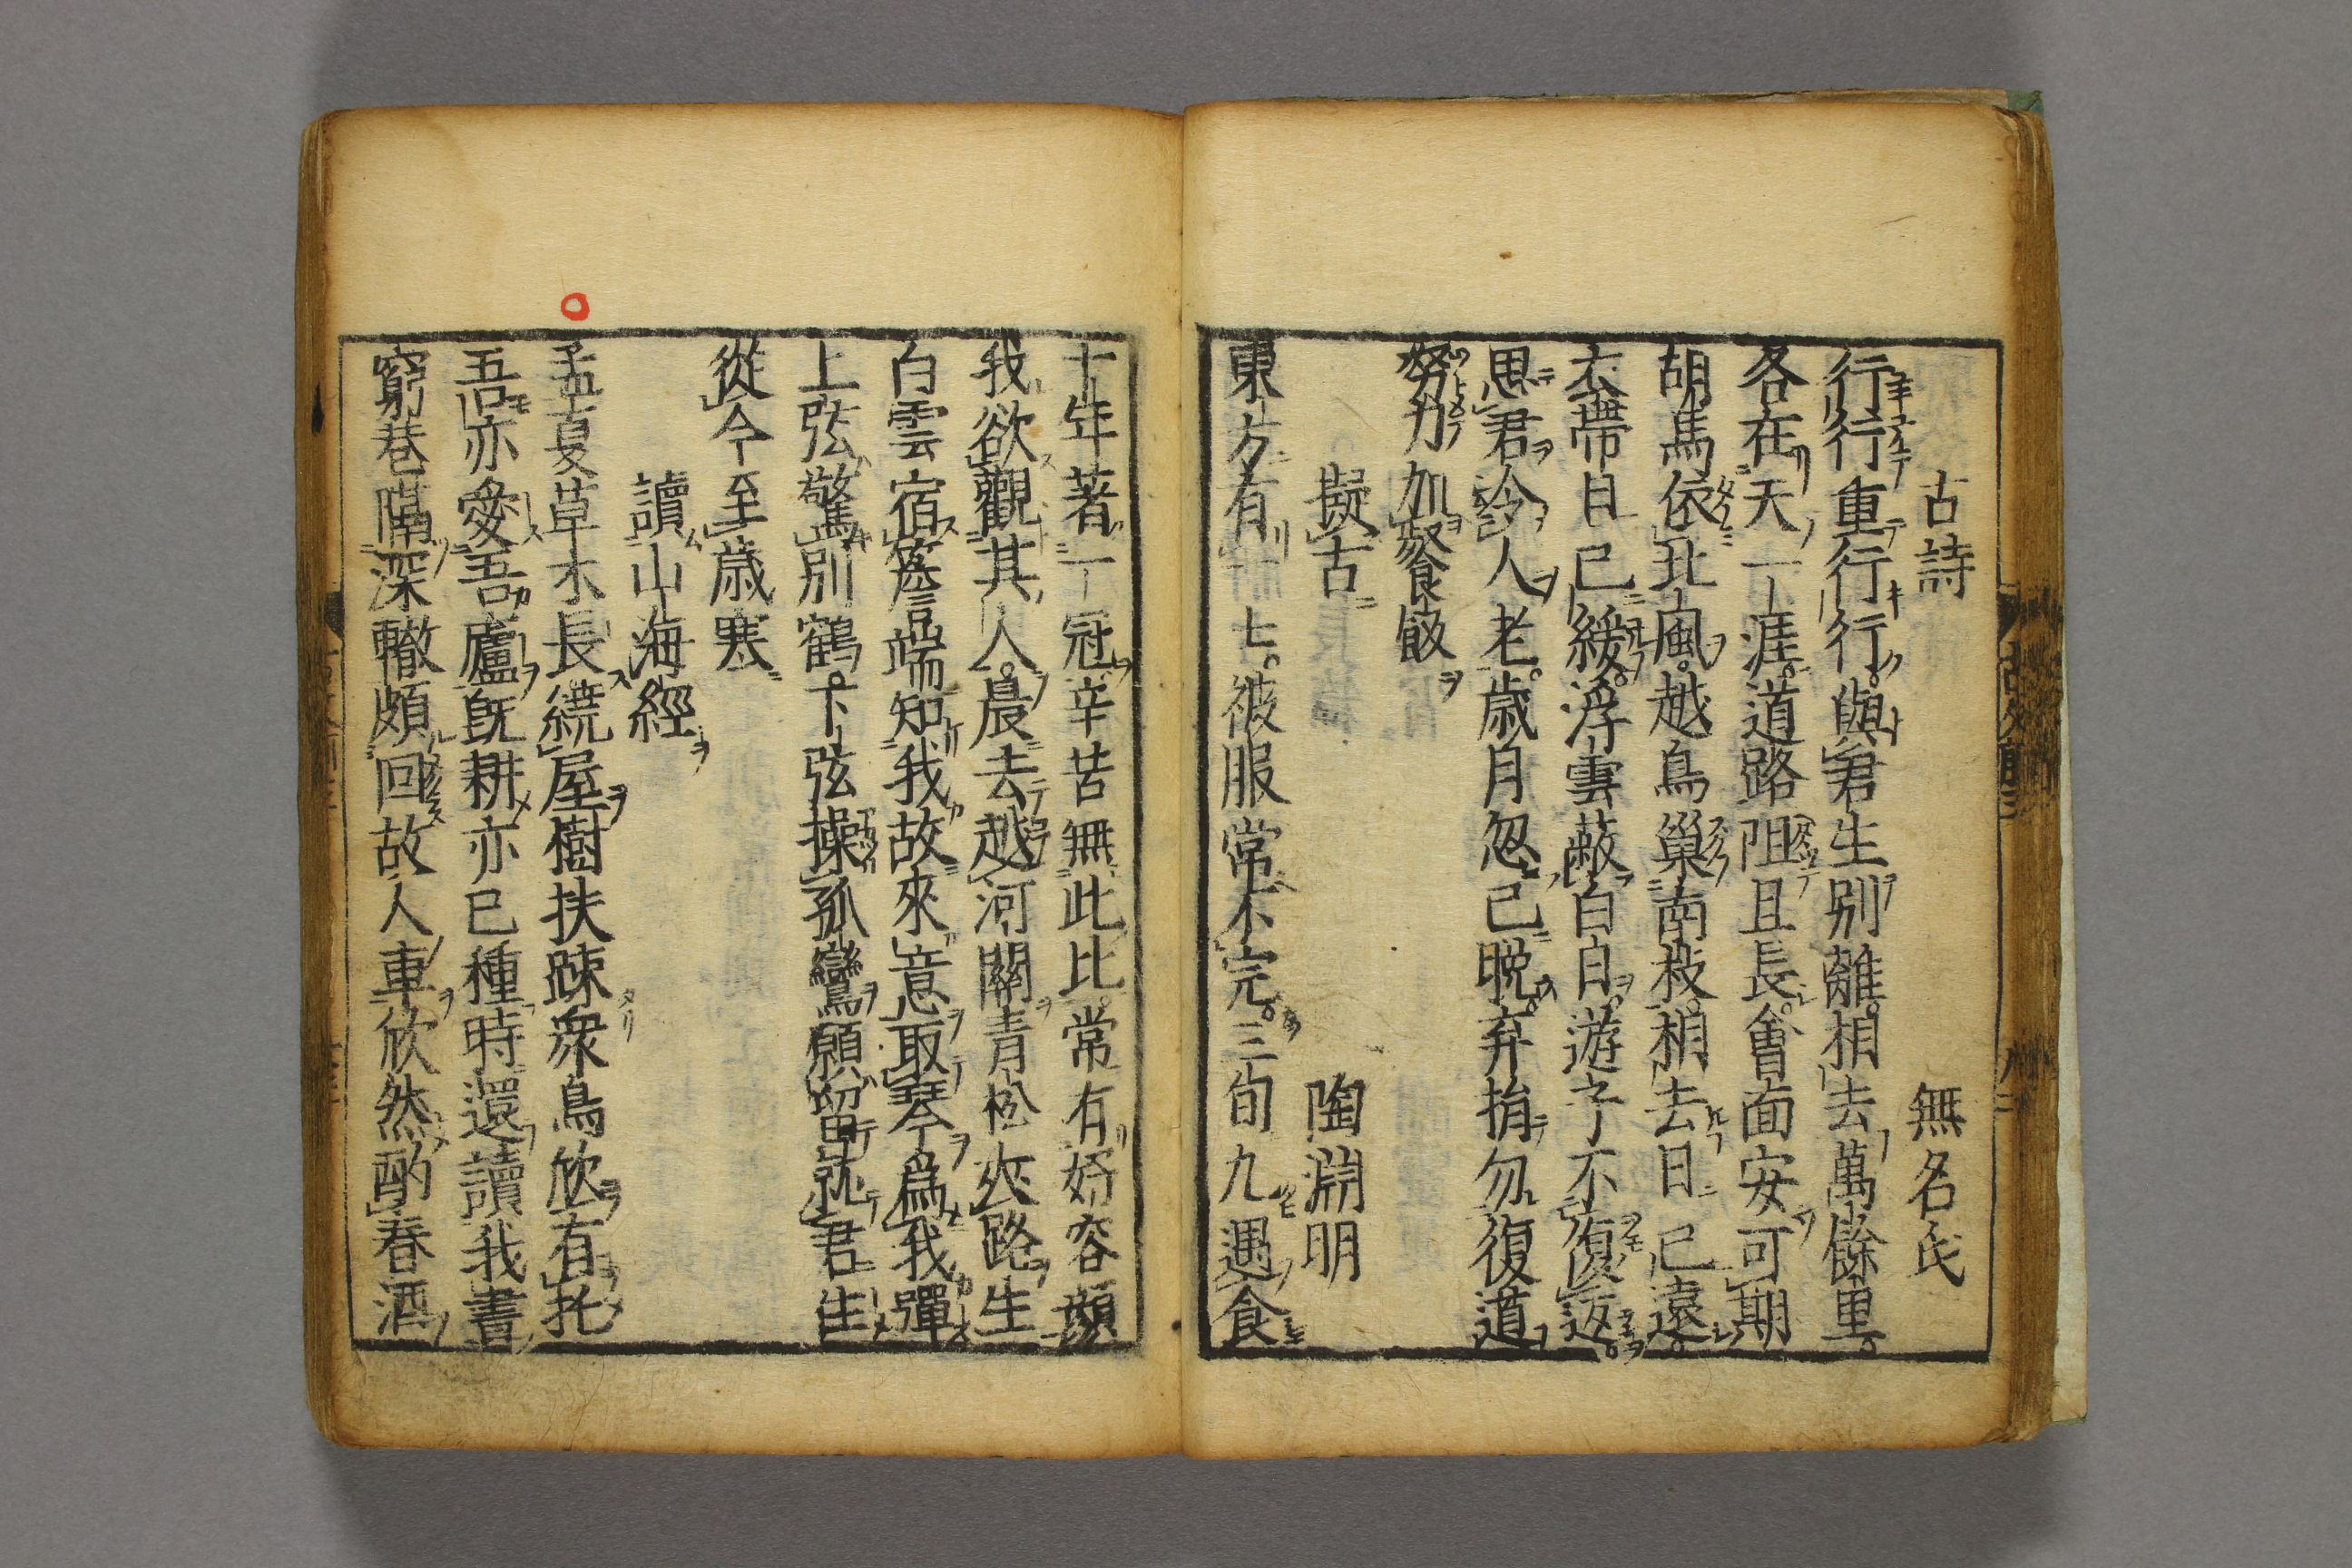 古詩 無名氏
行行重行行與君生別離相去萬餘里
各在天一涯道路阻且長會面安可期
胡馬依北風越鳥巢南枝相去日已遠
衣帶日已緩浮雲蔽白日遊子不復返
思君令人老歲月忽已晚弃捐勿復道
努力加餐飯
擬古 陶淵明
東方有一士被服常不完三旬九遇食
十年著一冠辛苦無此比常有好容顏
我欲觀其人晨去越河關青松夾路生
白雲宿簷端知我故來意取琴爲我彈
上弦驚別鶴下弦操孤鸞願留就君住
從今至歲寒
讀山海經
孟夏草木長繞屋樹扶踈衆鳥欣有托
吾亦愛吾廬既耕亦已種時還讀我書
窮巷隔深轍頗回故人車欣然酌春酒